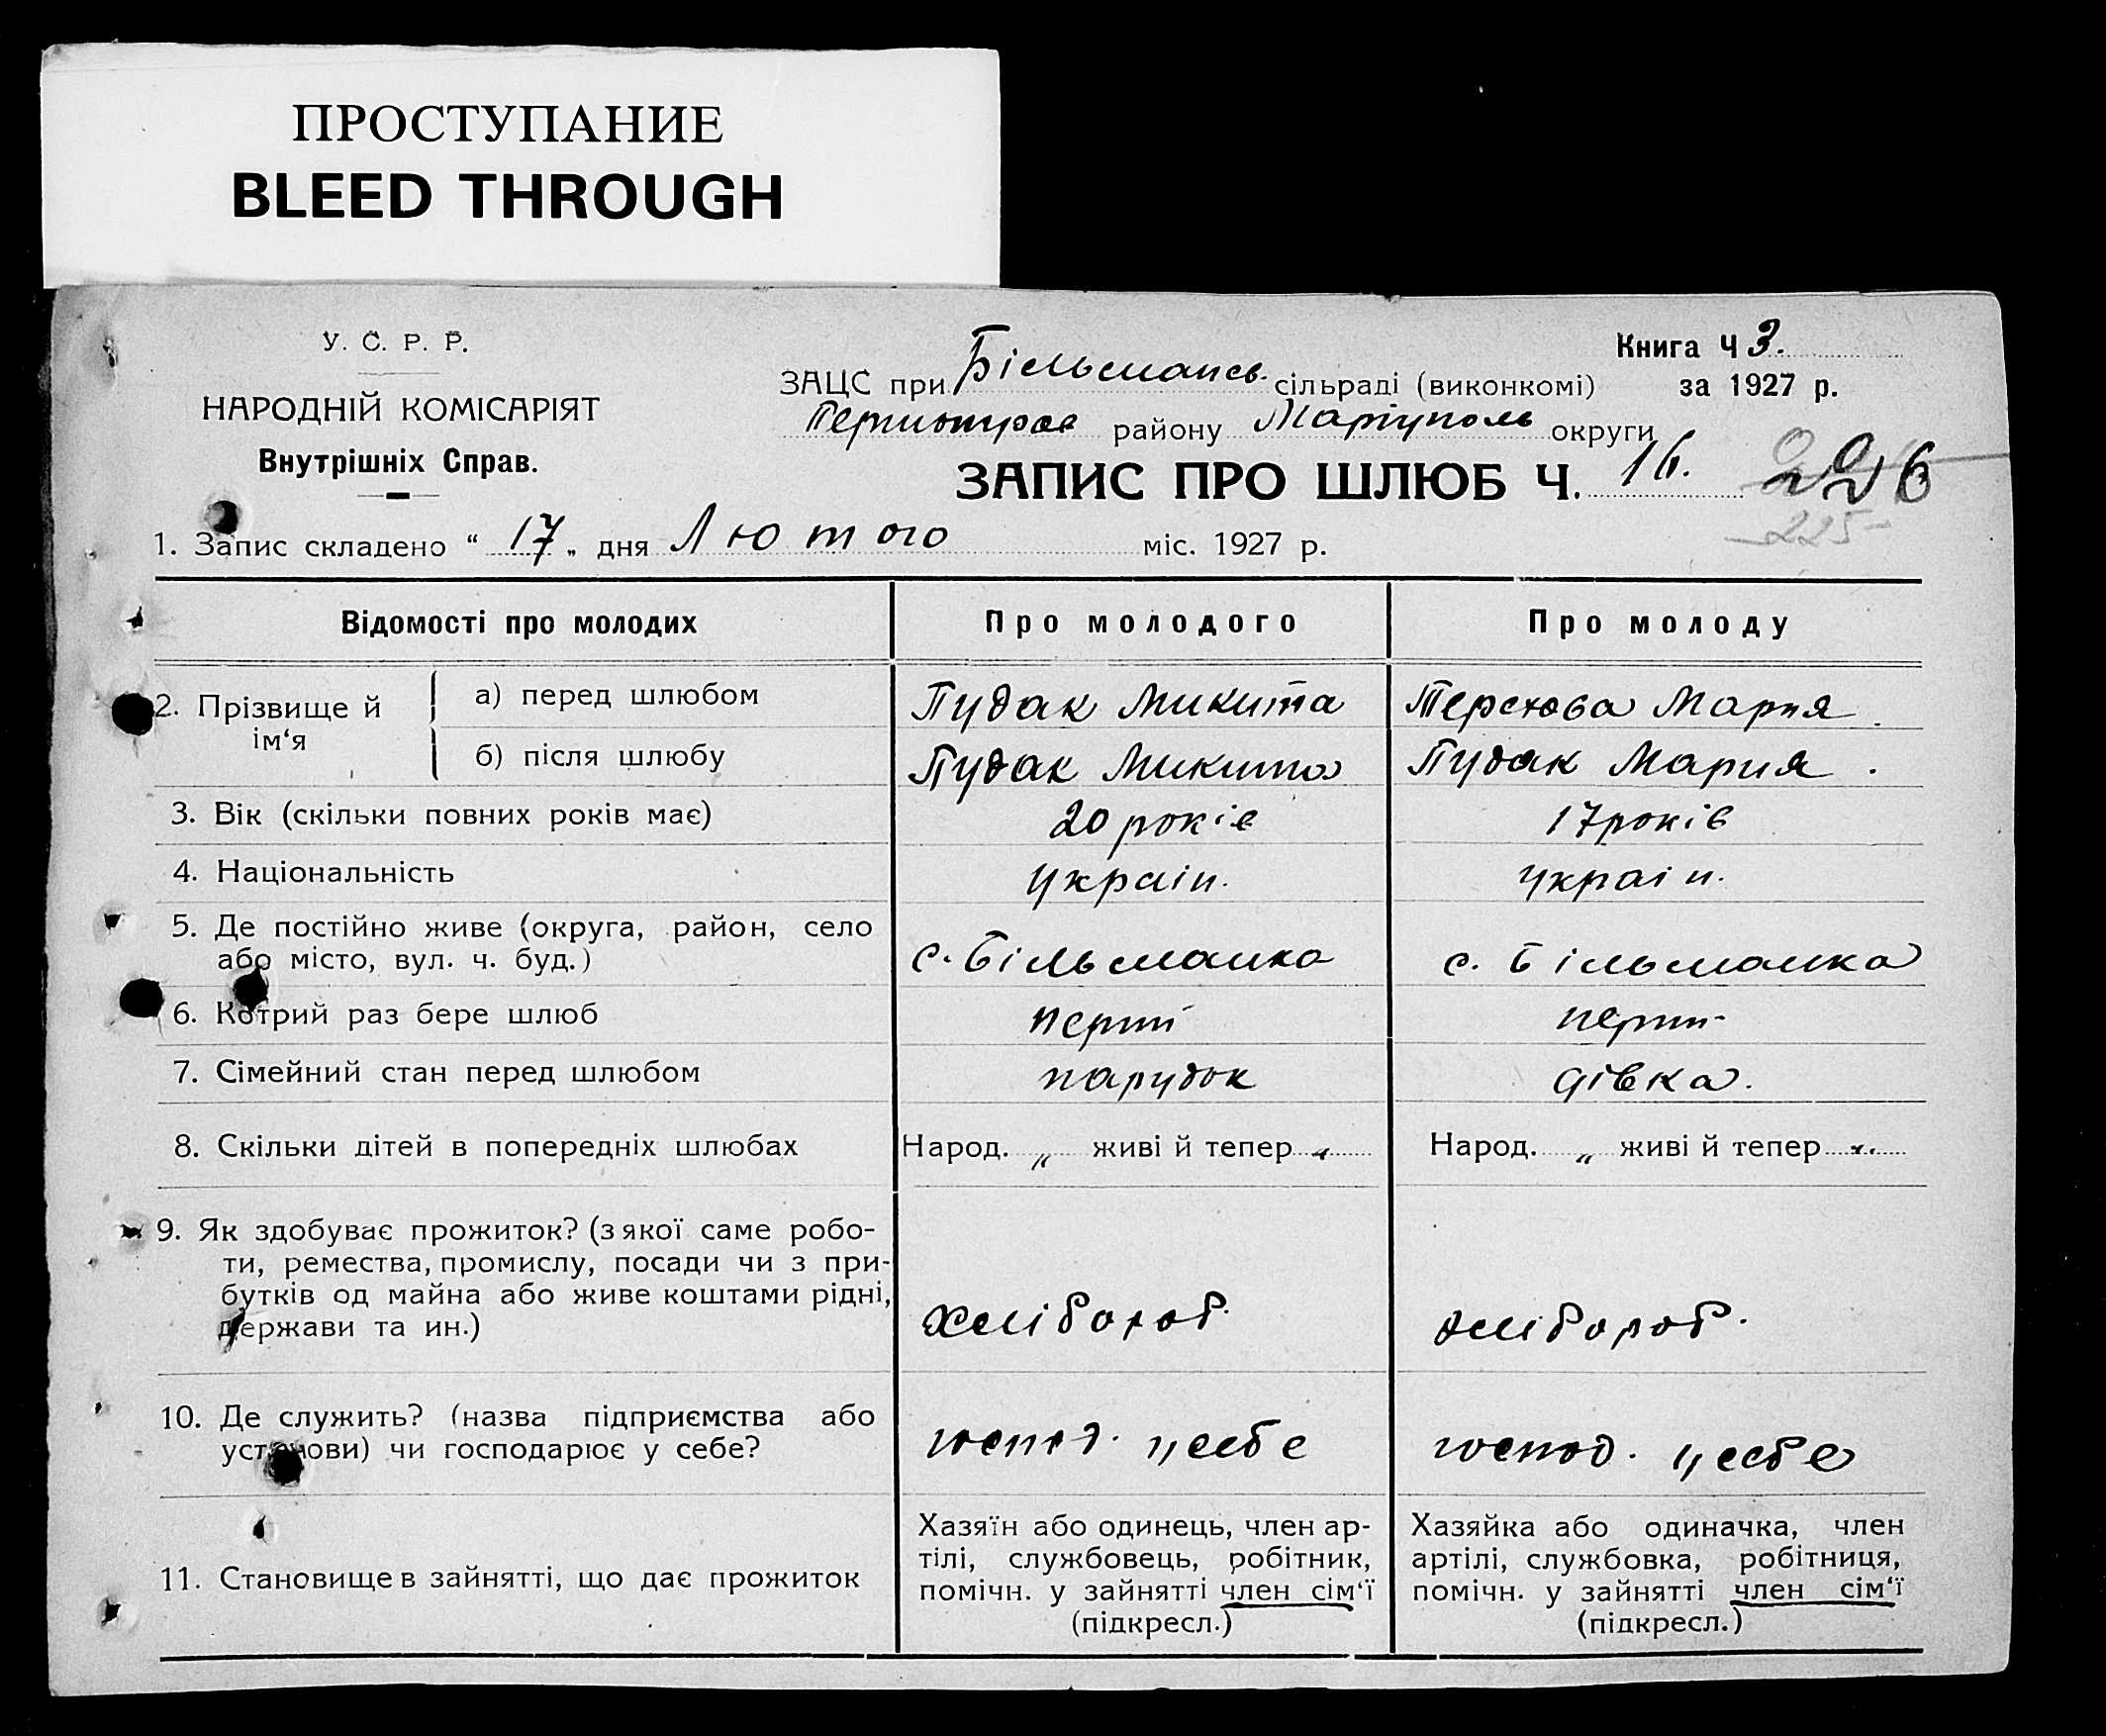 ПРОСТУПАНИЕ
BLEED THROUGH
У. С. Р. Р.
НАРОДНІЙ КОМІСАРІЯТ
Внутрішніх Справ.
Книга Ч 3.
ЗАЦС при Більмансь. сільраді (виконкомі) за 1927 р.
району Маріуполь округи
ЗАПИС ПРО ШЛЮБ Ч. 16. 226
225
1. Запис складено “ 17 „ дня Лютого міс. 1927 р.
Відомості про молодих Про молодого Про молоду
2. Прізвище й ім‘я
а) перед шлюбом Пудак Микита Мария
б) після шлюбу Пудак Микита Пудак Мария.
3. Вік (скільки повних років має) 20 років 17 років
4. Національність україн. україн.
5. Де постійно живе (округа, район, село
або місто, вул. ч. буд.) с. Більманка с. Більманка
6. Котрий раз бере шлюб перш перш
7. Сімейний стан перед шлюбом парубок дівка.
8. Скільки дітей в попередніх шлюбах Народ. „ живі й тепер „ Народ. „ живі й тепер „
9. Як здобуває прожиток? (з якої саме робо-
ти, ремества, промислу, посади чи з при-
бутків од майна або живе коштами рідні,
держави та ин.) хлібороб. хлібороб.
10. Де служить? (назва підприємства або
установи) чи господарює у себе? господ. у себе господ. у себе
11. Становище в зайнятті, що дає прожиток
Хазяїн або одинець, член ар-
тілі, службовець, робітник,
помічн. у зайнятті член сім‘ї
(підкресл.)
Хазяйка або одиначка, член
артілі, службовка, робітниця,
помічн. у зайнятті член сім‘ї
(підкресл.)